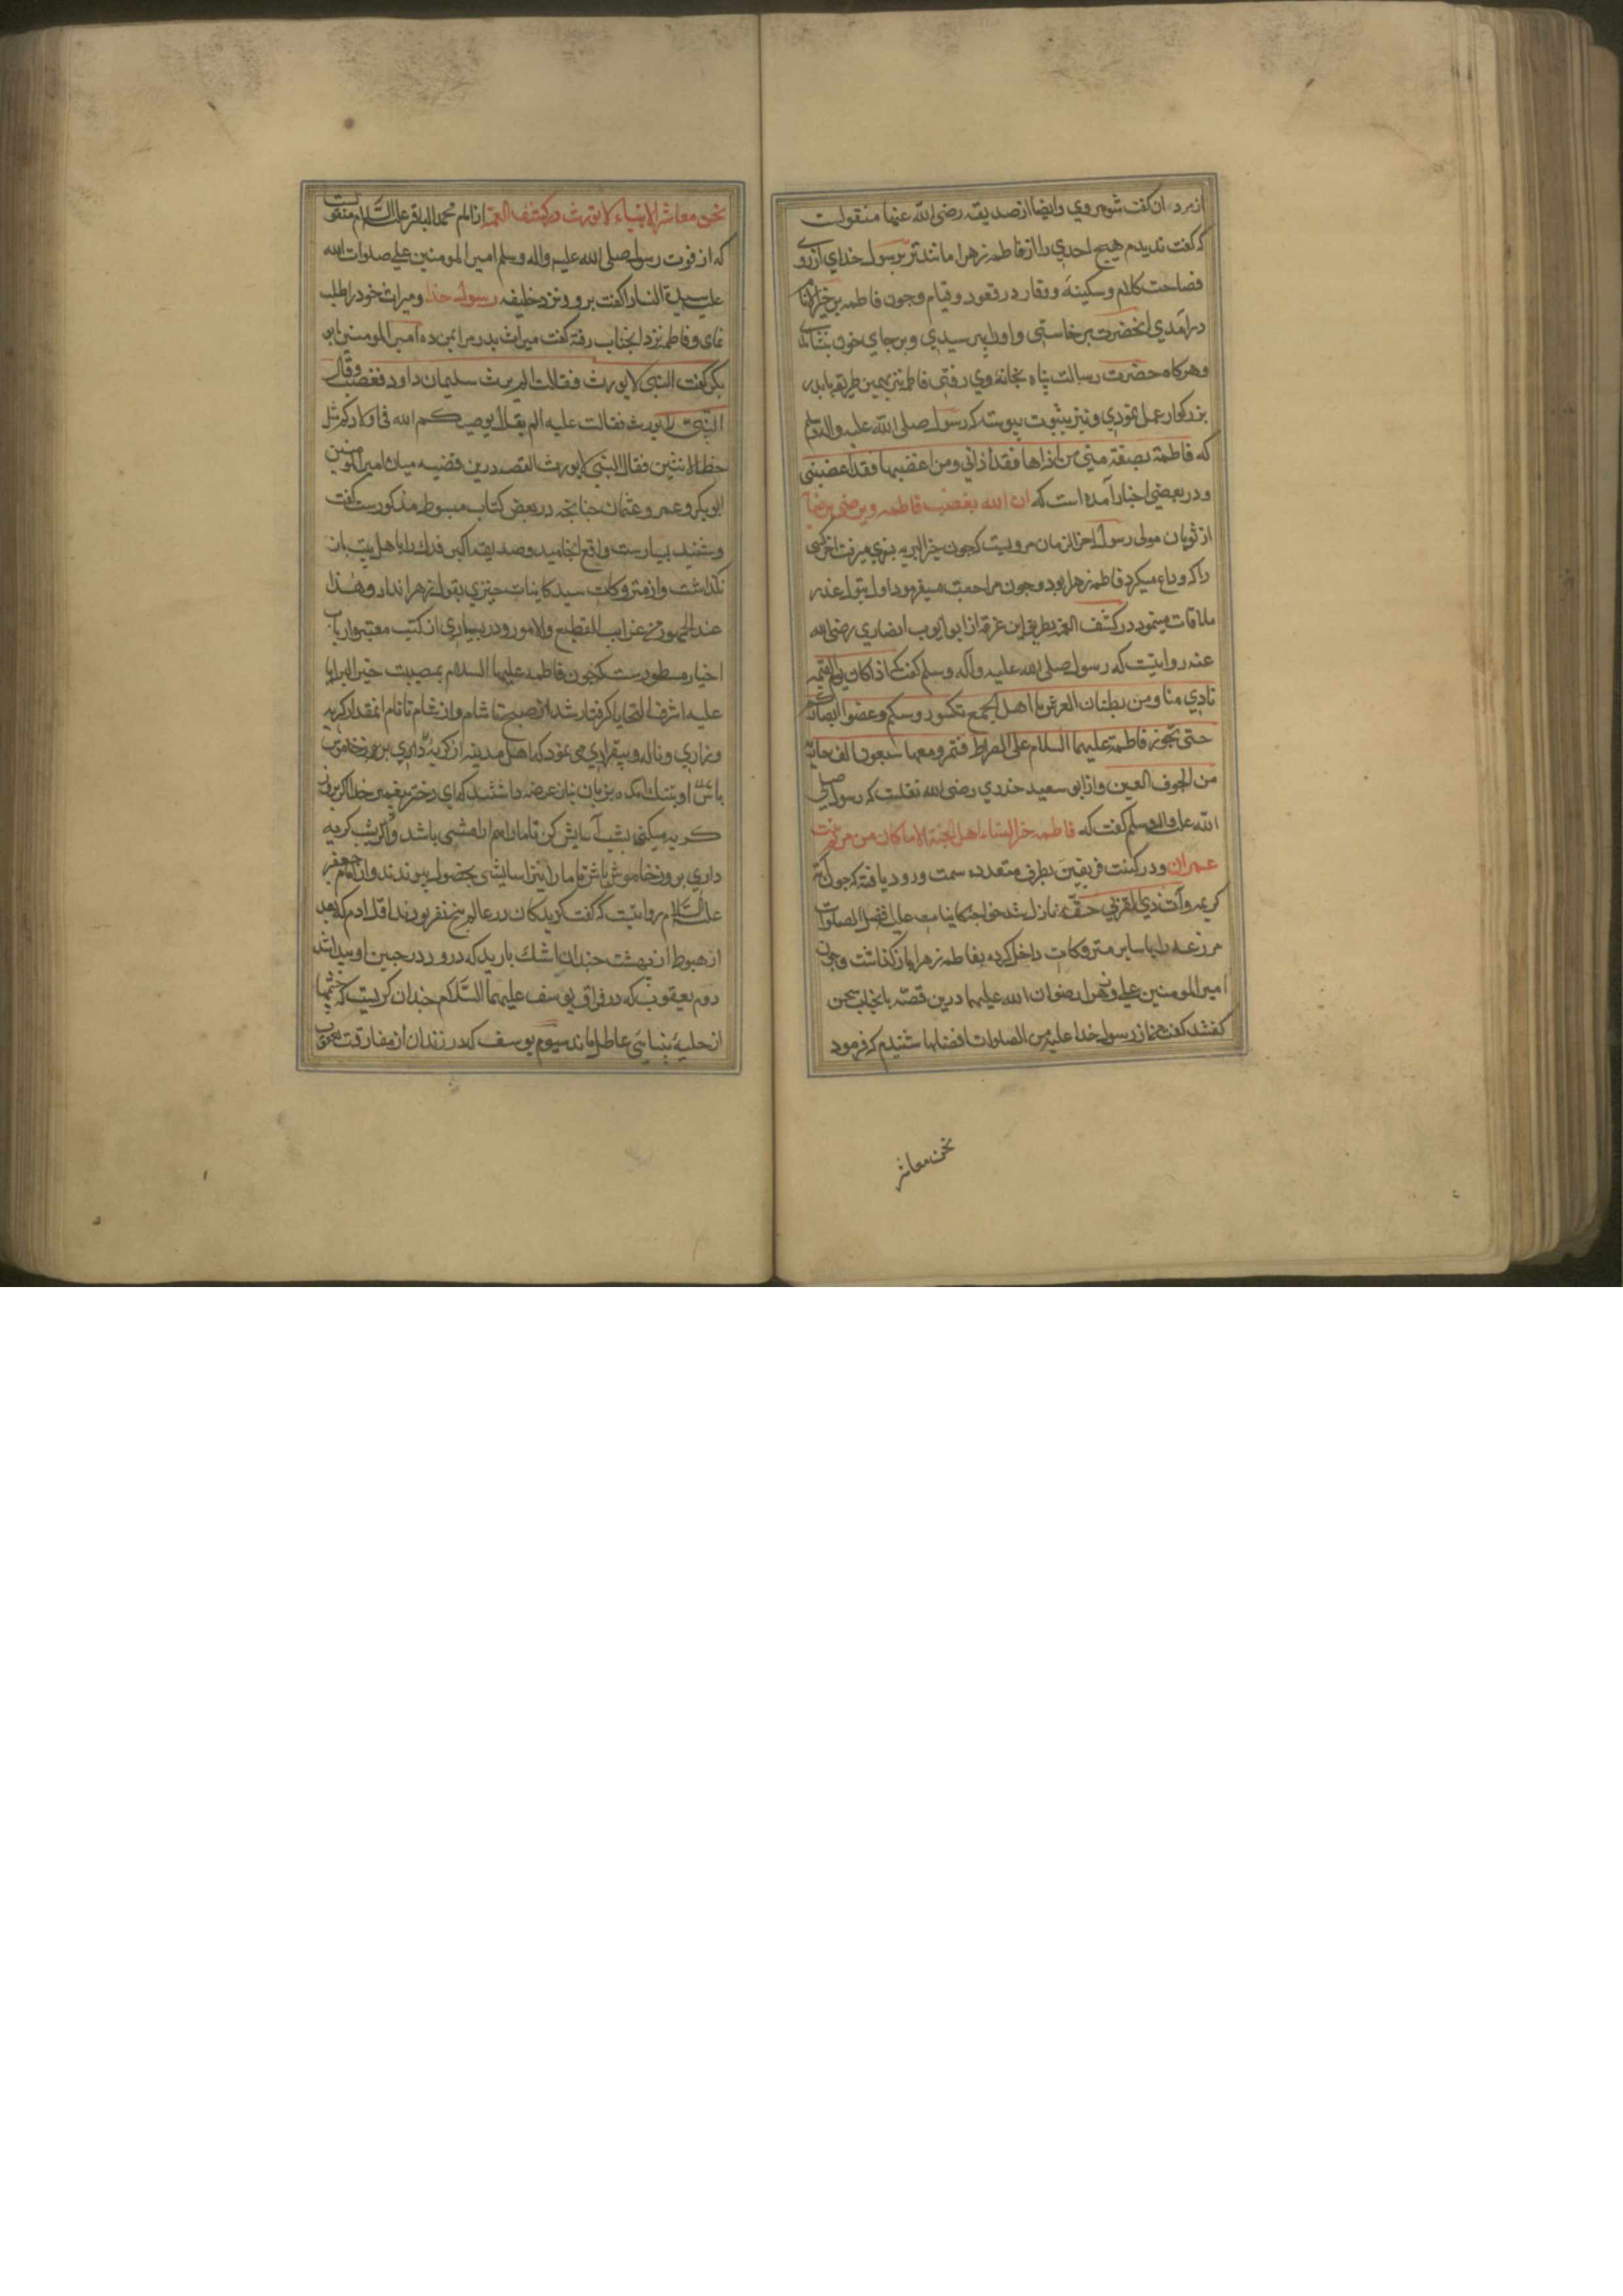 ازمردان گفت شوهر وي وايضا از صديقه رضى الله عنها منقولست
كه گفت نديدم هيچ احدي را از فاطمه زهرا مانندتر برسول خداي از روي
فصاحت كلام وسكينه ووقار در قعود وقيام وچون فاطمه بر خير الانام
درآمدي آنحضرت برخاستي واورا ببوسيدي وبر جاي خود بنشاندي
وهركاه حضرت رسالت پناه بخانه وي رفتي فاطمه نيز بهمين طريقه با پدر
بزركوار عمل نمودي ونيز بثبوت پيوسته كه رسول صلى الله عليه واله وسلم
كه فاطمة بضعة مني من اذاها فقد اذاني ومن اغضبها فقد اغضبني
ودر بعضي اخبار آمده است كه ان الله يغضب فاطمه ويرضى برضاها
از ثوبان مولى رسول اخر الزمان مرويست كه چون خير البريه بسفري ميرفت اخر كسي
راكه وداع ميكرد فاطمه زهرا بود وچون مراجعت ميفرمود اول بتول عذرا
ملاقات مينمود در كشف الغمه بطريق ابن عرفه از ابو ايوب انصاري رضى الله
عنه روايتست كه رسول صلى الله عليه وآله وسلم گفت كه اذا كان يوم القيمه
نادي مناد من بطنان العرش يا اهل الجمع نكسوا روسكم وغضوا ابصاركم
حتى تجوز فاطمة عليها السلام على الصراط فتمر ومعها سبعون الف جاريه
من الحور العين واز ابو سعيد خدري رضى الله نقلست كه رسول صلى
الله عليه واله وسلم گفت كه فاطمه خير النساء اهل الجنة الا ما كان من مريم بنت
عمران ودر كتب فريقين بطرق متعدده سمت ورود يافته كه چون آيه
كريمه وآت ذي القربى حقه نازل شد خواجه كاينات عليه افضل الصلوات
مزرعه را با ساير متروكات داخل كرده بفاطمه زهرا باز كذاشت وچون
امير المومنين علي وزهرا رضوان الله عليهما درين قصه با بانجناب سخن
گفتند گفت من از رسول خدا عليه من الصلوات افضلها شنيدم كه فرمود
نحن معاشر
نحن معاشر الانبياء لا نورث در كشف الغمه از امام محمد الباقر عليه السلام منقولست
كه از فوت رسول صلى الله عليه واله وسلم امير المومنين علي صلوات الله
عليه سيدة النسا را گفت برو ونزد خليفه رسول خدا وميراث خود را طلب
نماي وفاطمه نزد انجناب رفته گفت ميراث پدر مرا بمن ده امير المومنين ابو
بكر گفت النبي لا يورث فقالت الم يرث سليمان داود فغضب وقال
النبي لا يورث فقالت عليه الم يقل يوصيكم الله في اولادكم للذكر مثل
حظ الانثيين فقال النبي لا يورث القصه درين قضيه ميان امير المومنين
ابو بكر وعمر وعثمان چنانچه در بعض كتاب مبسوطه مذكورست گفت
وشنيد بسيارست واقع انجاميد وصديق اكبر فدك را باهل بيت باز
نگذاشت واز متروكات سيد كاينات چيزي ببتول زهرا نداد وهذا
عند الجمهور من غرايب القطيع والامور ودر بسياري از كتب معتبر وارباب
اخبار مسطورست كه چون فاطمه عليها السلام بمصيبت خير البرايا
عليه اشرف التحايا گرفتار شد از صبح تا شام واز شام تا بام انمقدار گريه
وزاري وناله وبيقراري مي نمود كه اهل مدينه از گريه
او بتنك امده بزبان نياز عرضه داشتند كه اي دختر پيغمبر خدا اگر بروز
گريه ميكني بشب آسايش كن تا ما را هم ارامشي باشد واگر بشب گريه
داري بروز خاموش باش تا ما را نيز اسايشي بحصول پيوندند واز امام جعفر
عليه السلام روايتست كه گفت گريه كنان در عالم پنج نفر بودند اول ادم كه بعد
از هبوط از بهشت چندان اشك باريد كه درو در جبين او پيدا شد
دوم يعقوب كه در فراق يوسف عليهما السلام چندان گريست كه چشمها
از حليه بينايي عاطل ماند سيوم يوسف كه در زندان از مفارقت يعقوب